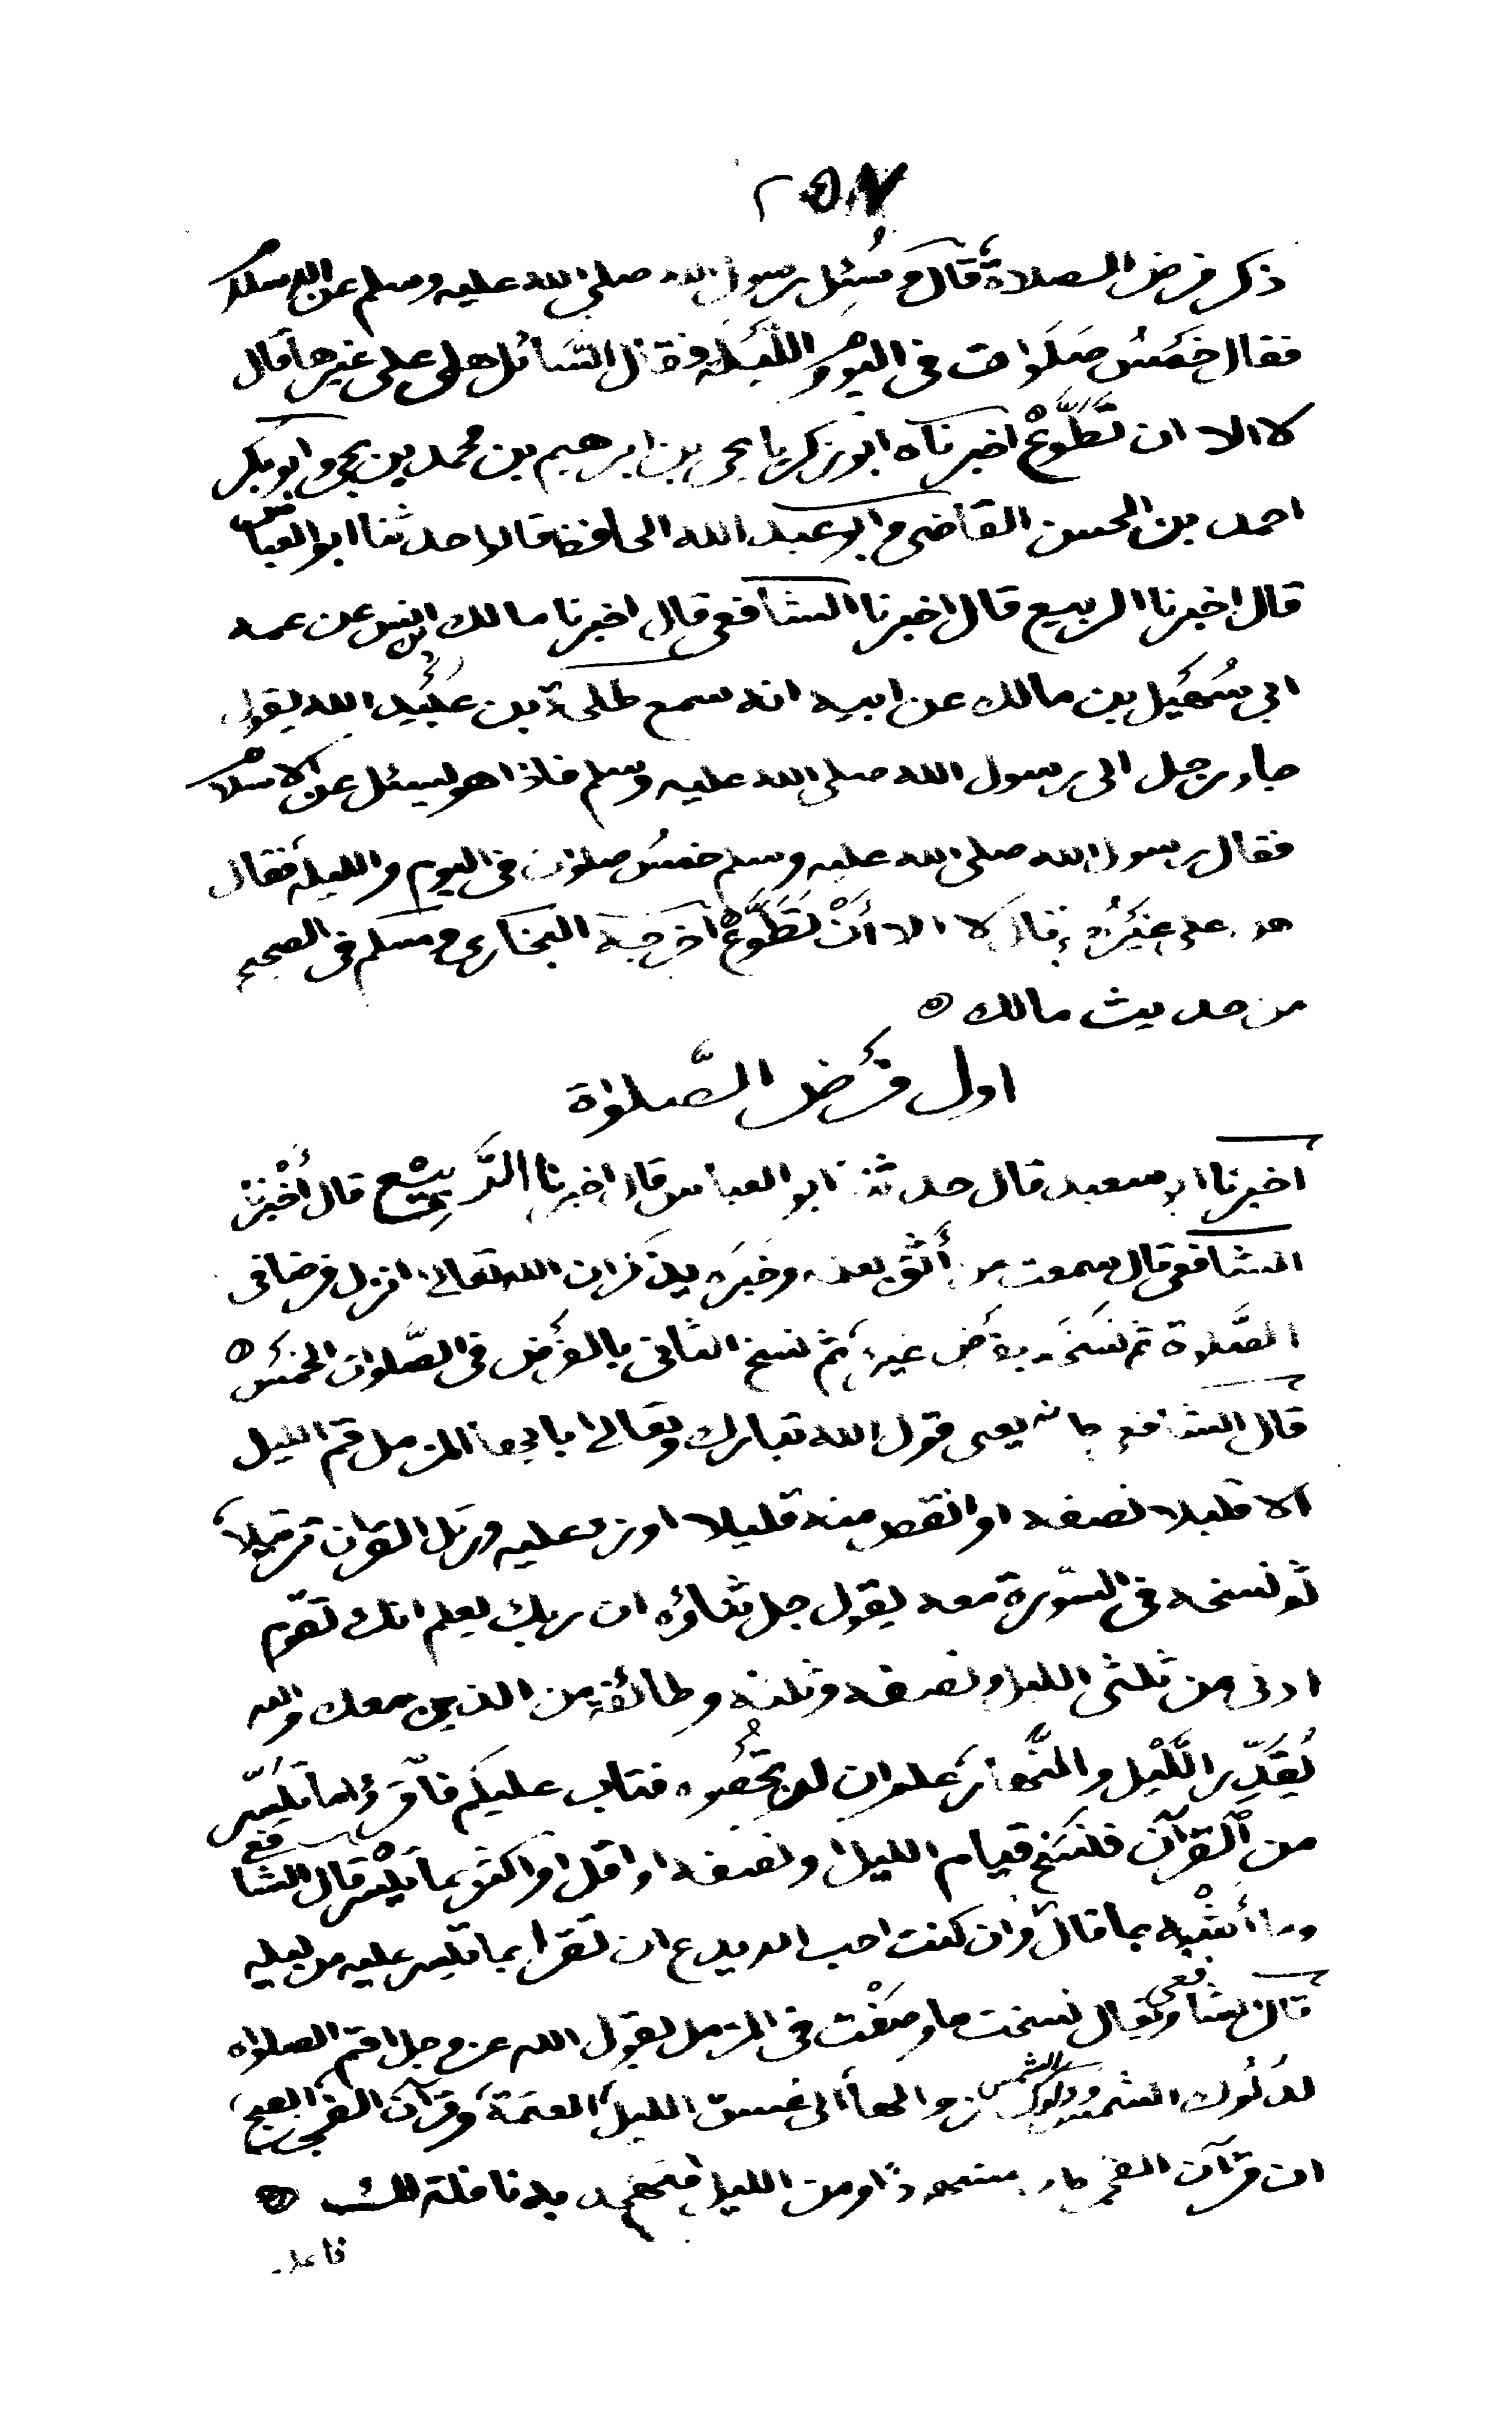 ٢٥٧
ذكر فرض الصلاة قال وسُئِل رسول الله صلى الله عليه وسلم عن الاسلام
فقال خَمْسُ صَلَوات فى اليوم واللَّيْلة فقال السَّائل هل على غيرها قال
لا الا ان تَطَّوَّعْ اخبرناه ابو زكريا يحيى بن ابرهيم بن محمد بن يحيى وابو بكر
احمد بن الحسن القاضى وابو عبد الله الحافظ قالوا حدثنا ابو العباس
قال اخبرنا الربيع قال اخبرنا الشافعى قال اخبرنا مالك بن انس عن عمه
ابى سُهَيْل بن مالك عن ابيه انه سمع طلحة بن عُبَيْد الله يقول
جاء رجل الى رسول الله صلى الله عليه وسلم فاذا هو يسئل عن الاسلام
فقال رسول الله صلى الله عليه وسلم خمسُ صلوات فى اليوم والليلة فقال
هل على غَيْرُه قال لا الا أنْ تَطَّوَّعْ اخرجه البخارى ومسلم فى الصحيح
من حديث مالك ه
اول فَرْض الصَّلوٰة
اخبرنا ابو سعيد قال حدثنا ابو العباس قال اخبرنا الرَّبِيْع قال أخْبَرَنا
الشافعى قال سمعت من أثق به وخبره يذكر ان الله تعالى انزل فرضا فى
الصَّلاة ثم نَسَخَه بفرض غيره ثم نسخ الثانى بالفَرْض فى الصَّلوات الخمْس ه
قال الشافعى كانه يعنى قول الله تبارك وتعالى يا ايها المزمل قم الليل
الا قليلا نصفه او انقص منه قليلا او زد عليه ورتل القران ترتيلا
ثم نسخه فى السّورة معه يقول جل ثناؤه ان ربك يعلم انك تقوم
ادنى من ثلثى الليل ونصفه وثلثه وطائفة من الذين معك والله
يُقَدِّر اللَّيْل والنَّهار علم ان لن تحْصُوه فتاب عليكم فاقرؤا ما تيسَّر
من القرآن فنسَخ قيام الليل او نصفه او اقل او اكثر بما تيسر قال الشافعى
وما أشْبه ما قال وان كنت احب الا يدع ان تقرا بما تيسر عليه من ليله
قال الشافعى ويقال نسخت ما وصَفْت فى المزمل بقول الله عز وجل اقم الصلوٰه
لدُلُوك الشمس ودلوك الشمس زوالها الى غسق الليل العتمة وقرآن الفجر الصبح
ان قرآن الفجر كان مشهودًا ومن الليل فتهجد به نافلة لك ه